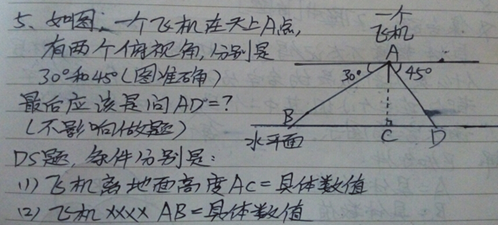 5、如图,一个飞机在天上A点,
有两个俯视角,分别是
30°和45°(图准确)
最后应该是问AD=?
(不影响做题)
DS题,条件分别是:
(1) 飞机离地面高度AC=具体数值
(2) 飞机xxxx AB=具体数值
一个
飞机
A
30°
45°
B
水平面
C
D